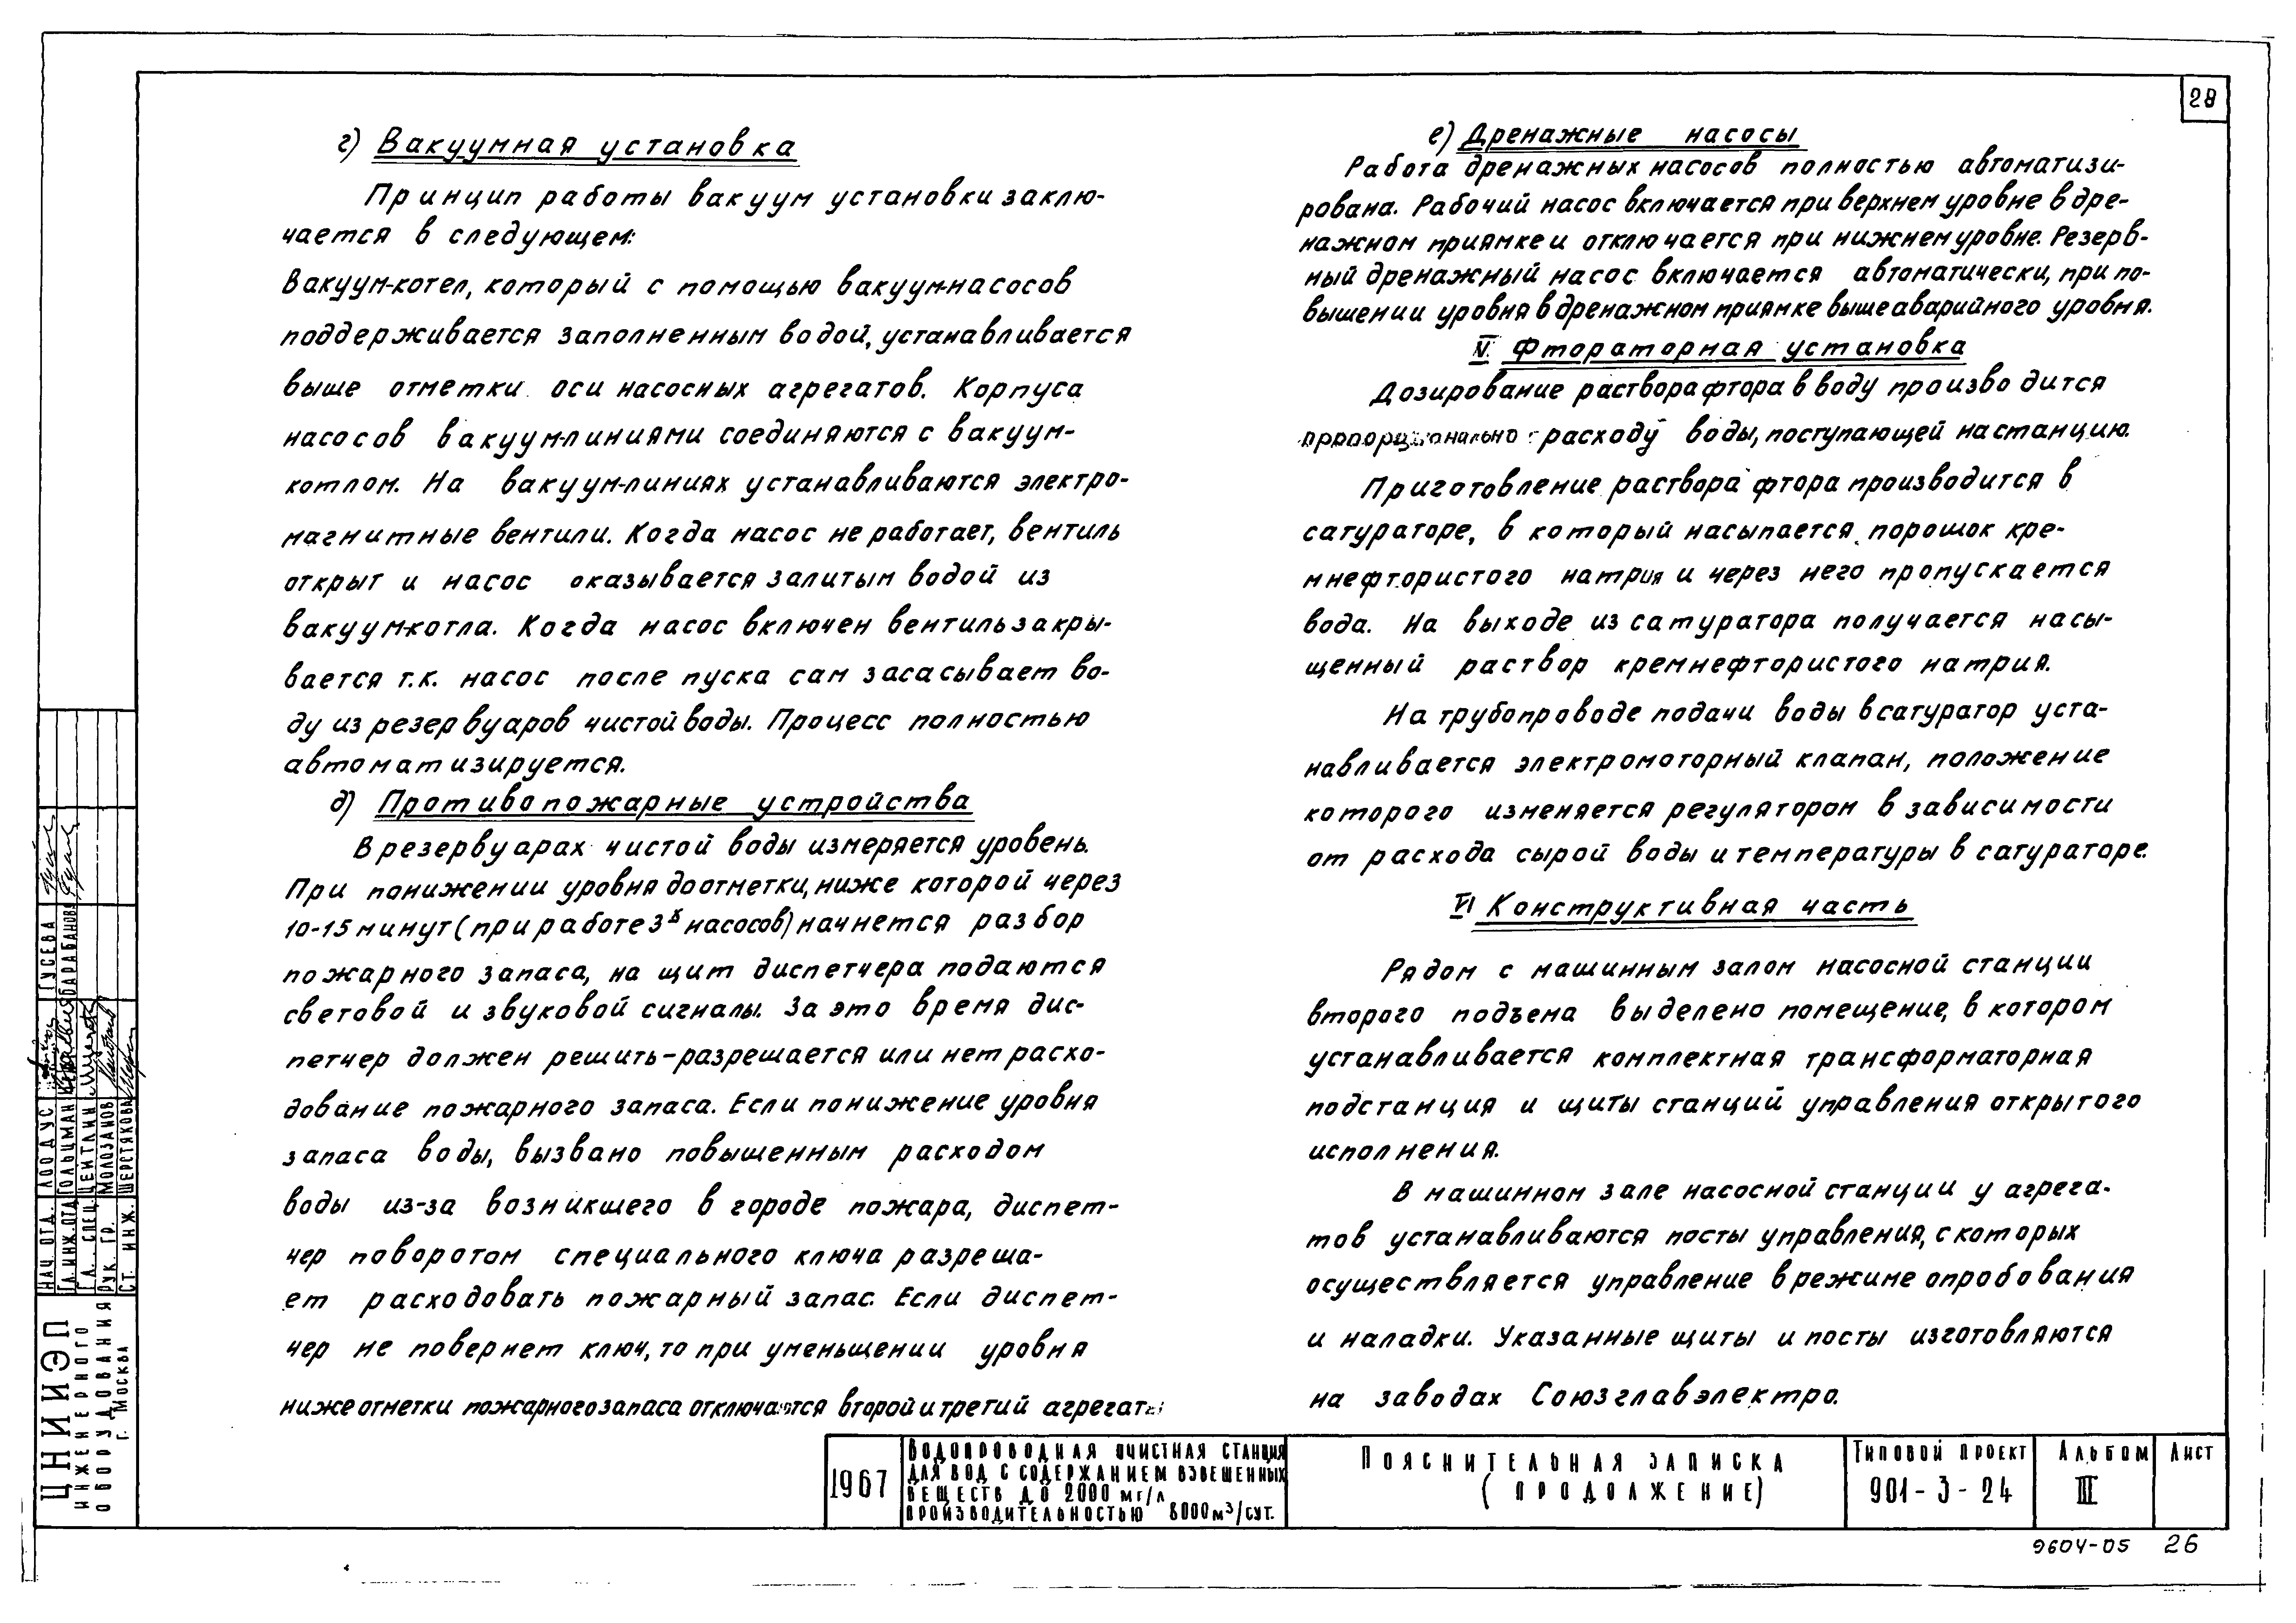 28
г) Вакуумная установка
Принцип работы вакуум установки заклю-
чается в следующем:
Вакуум-котел, который с помощью вакуум-насосов
поддерживается заполненным водой, устанавливается
выше отметки оси насосных агрегатов. Корпуса
насосов вакуум-линиями соединяются с вакуум-
котлом. На вакуум-линиях устанавливаются электро-
магнитные вентили. Когда насос не работает, вентиль
открыт и насос оказывается залитым водой из
вакуум-котла. Когда насос включен вентиль закры-
вается т.к. насос после пуска сам засасывает во-
ду из резервуаров чистой воды. Процесс полностью
автоматизируется.
д) Противопожарные устройства
В резервуарах чистой воды измеряется уровень.
При понижении уровня до отметки, ниже которой через
10-15 минут (при работе 3х насосов) начнется разбор
пожарного запаса, на щит диспетчера подаются
световой и звуковой сигналы. За это время дис-
петчер должен решить-разрешается или нет расхо-
дование пожарного запаса. Если понижение уровня
запаса воды, вызвано повышенным расходом
воды из-за возникшего в городе пожара, диспет-
чер поворотом специального ключа разреша-
ет расходовать пожарный запас. Если диспет-
чер не повернет ключ, то при уменьшении уровня
ниже отметки пожарного запаса отключаются второй и третий агрегаты
е) Дренажные насосы
Работа дренажных насосов полностью автоматизи-
рована. Рабочий насос включается при верхнем уровне в дре-
нажном приямке и отключается при нижнем уровне. Резерв-
ный дренажный насос включается автоматически, при по-
вышении уровня в дренажном приямке выше аварийного уровня.
IV. Фтораторная установка
Дозирование раствора фтора в воду производится
пропорционально расходу воды, поступающей на станцию.
Приготовление раствора фтора производится в
сатураторе, в который насыпается порошок кре-
мнефтористого натрия и через него пропускается
вода. На выходе из сатуратора получается насы-
щенный раствор кремнефтористого натрия.
На трубопроводе подачи воды в сатуратор уста-
навливается электромоторный клапан, положение
которого изменяется регулятором в зависимости
от расхода сырой воды и температуры в сатураторе.
VI Конструктивная часть
Рядом с машинным залом насосной станции
второго подъема выделено помещение, в котором
устанавливается комплектная трансформаторная
подстанция и щиты станций управления открытого
исполнения.
В машинном зале насосной станции у агрега-
тов устанавливаются посты управления, с которых
осуществляется управление в режиме опробования
и наладки. Указанные щиты и посты изготовляются
на заводах Союзглавэлектро.
ЦНИИЭП
ИНЖЕНЕРНОГО
ОБОРУДОВАНИЯ
Г. МОСКВА
НАЧ. ОТД. ЛООДУС
ГЛ. ИНЖ. ОТД. ГОЛЬЦМАН
ГЛ. СПЕЦ. ЦЕЙТЛИН
РУК. ГР. МОЛОЗАНОВ
СТ. ИНЖ. ШЕРСТЯКОВА
ГУСЕВА
БАРАБАНОВА
1967
ВОДОПРОВОДНАЯ ОЧИСТНАЯ СТАНЦИЯ
ДЛЯ ВОД С СОДЕРЖАНИЕМ ВЗВЕШЕННЫХ
ВЕЩЕСТВ ДО 2000 мг/л
ПРОИЗВОДИТЕЛЬНОСТЬЮ 8000 м³/СУТ.
ПОЯСНИТЕЛЬНАЯ ЗАПИСКА
(ПРОДОЛЖЕНИЕ)
ТИПОВОЙ ПРОЕКТ
901-3-24
АЛЬБОМ
III
ЛИСТ
9604-05 26